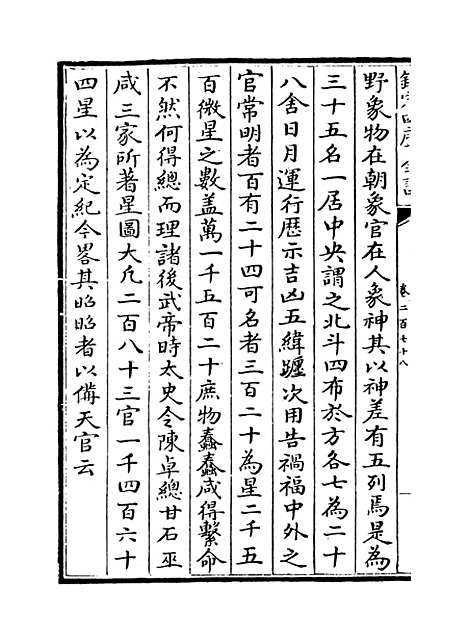 欽定四庫全書
卷二百七十八
野象物在朝象官在人象神其以神差有五列焉是為
三十五名一居中央謂之北斗四布於方各七為二十
八舍日月運行歴示吉凶五緯躔次用告禍福中外之
官常明者百有二十四可名者三百二十為星二千五
百微星之數盖萬一千五百二十庶物蠢蠢咸得繫命
不然何得總而理諸後武帝時太史令陳卓總甘石巫
咸三家所著星圖大凡二百八十三官一千四百六十
四星以為定紀今畧其昭昭者以備天官云